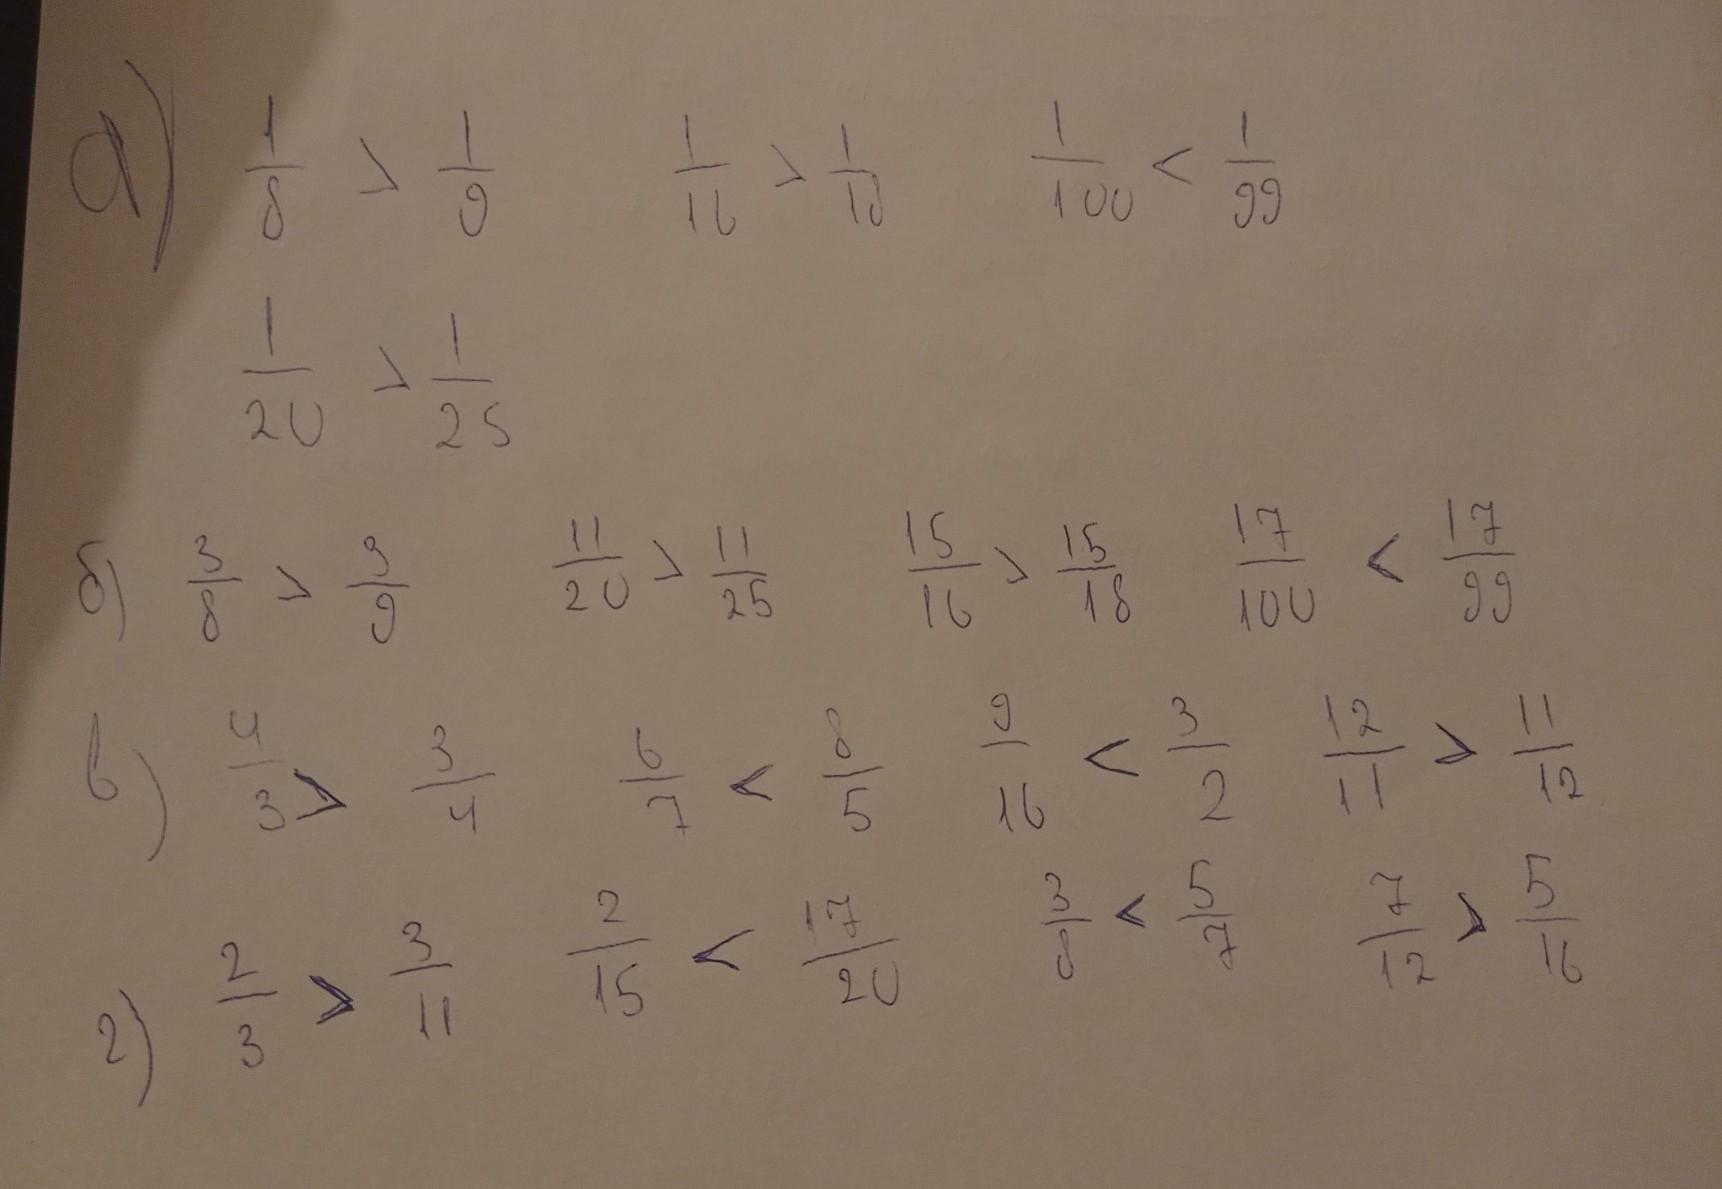 а) 1/8 > 1/9 1/16 > 1/18 1/100 < 1/99
1/20 > 1/25
б) 3/8 > 3/9 11/20 > 11/25 15/16 > 15/18 17/100 < 17/99
в) 4/3 > 3/4 6/7 < 8/5 9/16 < 3/2 12/11 > 11/12
г) 2/3 > 3/11 2/15 < 17/20 3/8 < 5/7 7/12 > 5/16